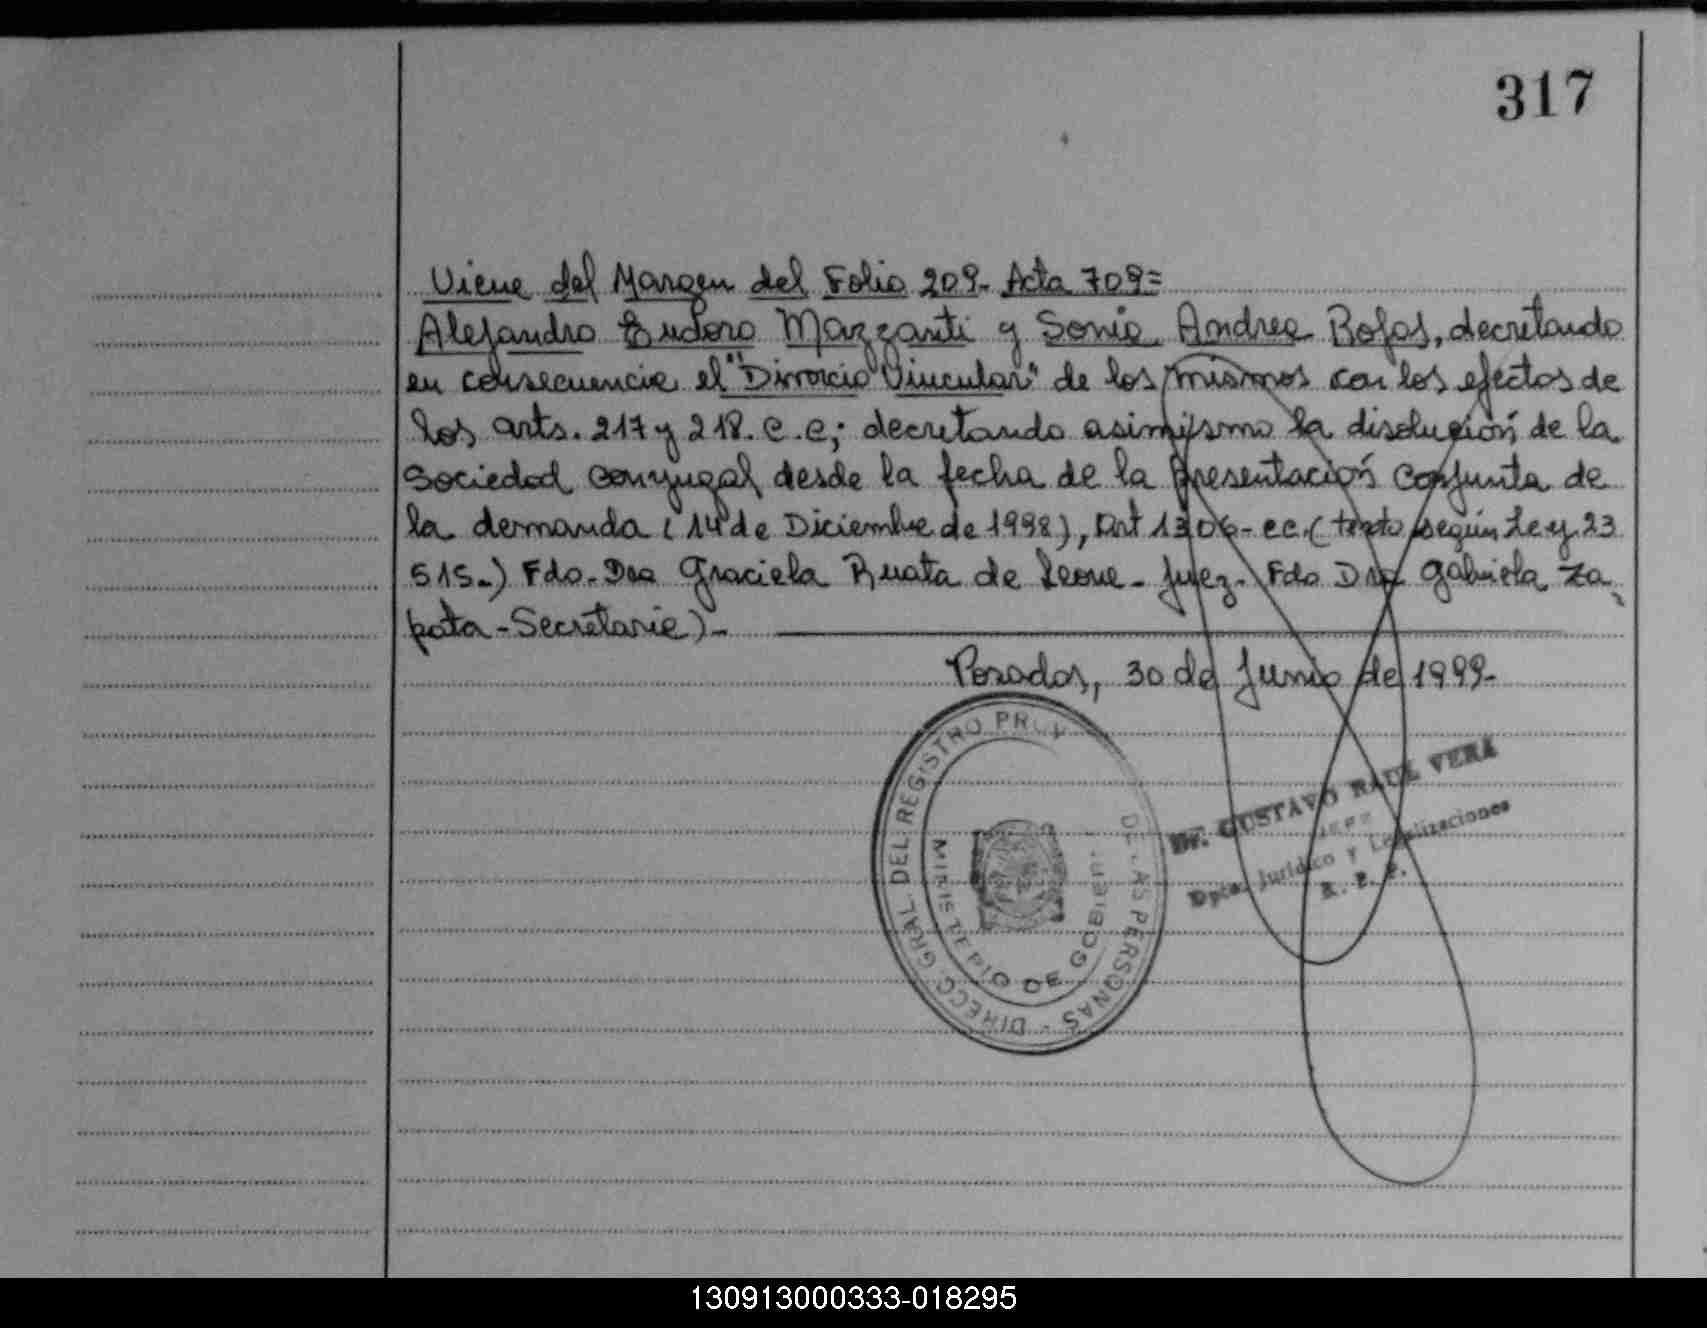 317
Viene del Margen del Folio 209- Acta 709=
Alejandro Eudoro Mazzanti y Sonia Andrea Rojas, decretando
en consecuencia el "Divorcio Vincular" de los mismos con los efectos de
los arts. 217 y 218. C.C; decretando asimismo la disolución de la
Sociedad conyugal desde la fecha de la presentación conjunta de
la demanda (14 de Diciembre de 1998), Art 1306- CC. (texto según Ley 23
515-) Fdo- Dra Graciela Ruata de Leone- Juez- Fdo Dra Gabriela Za
pata - Secretaria)-
Posadas, 30 de Junio de 1999-
DIRECC. GRAL DEL REGISTRO PROV. DE LAS PERSONAS -
MINISTERIO DE GOBIER.
Dr. GUSTAVO RAUL VERA
JEFE
Dpto. Jurídico y Legalizaciones
R. P. P.
130913000333-018295